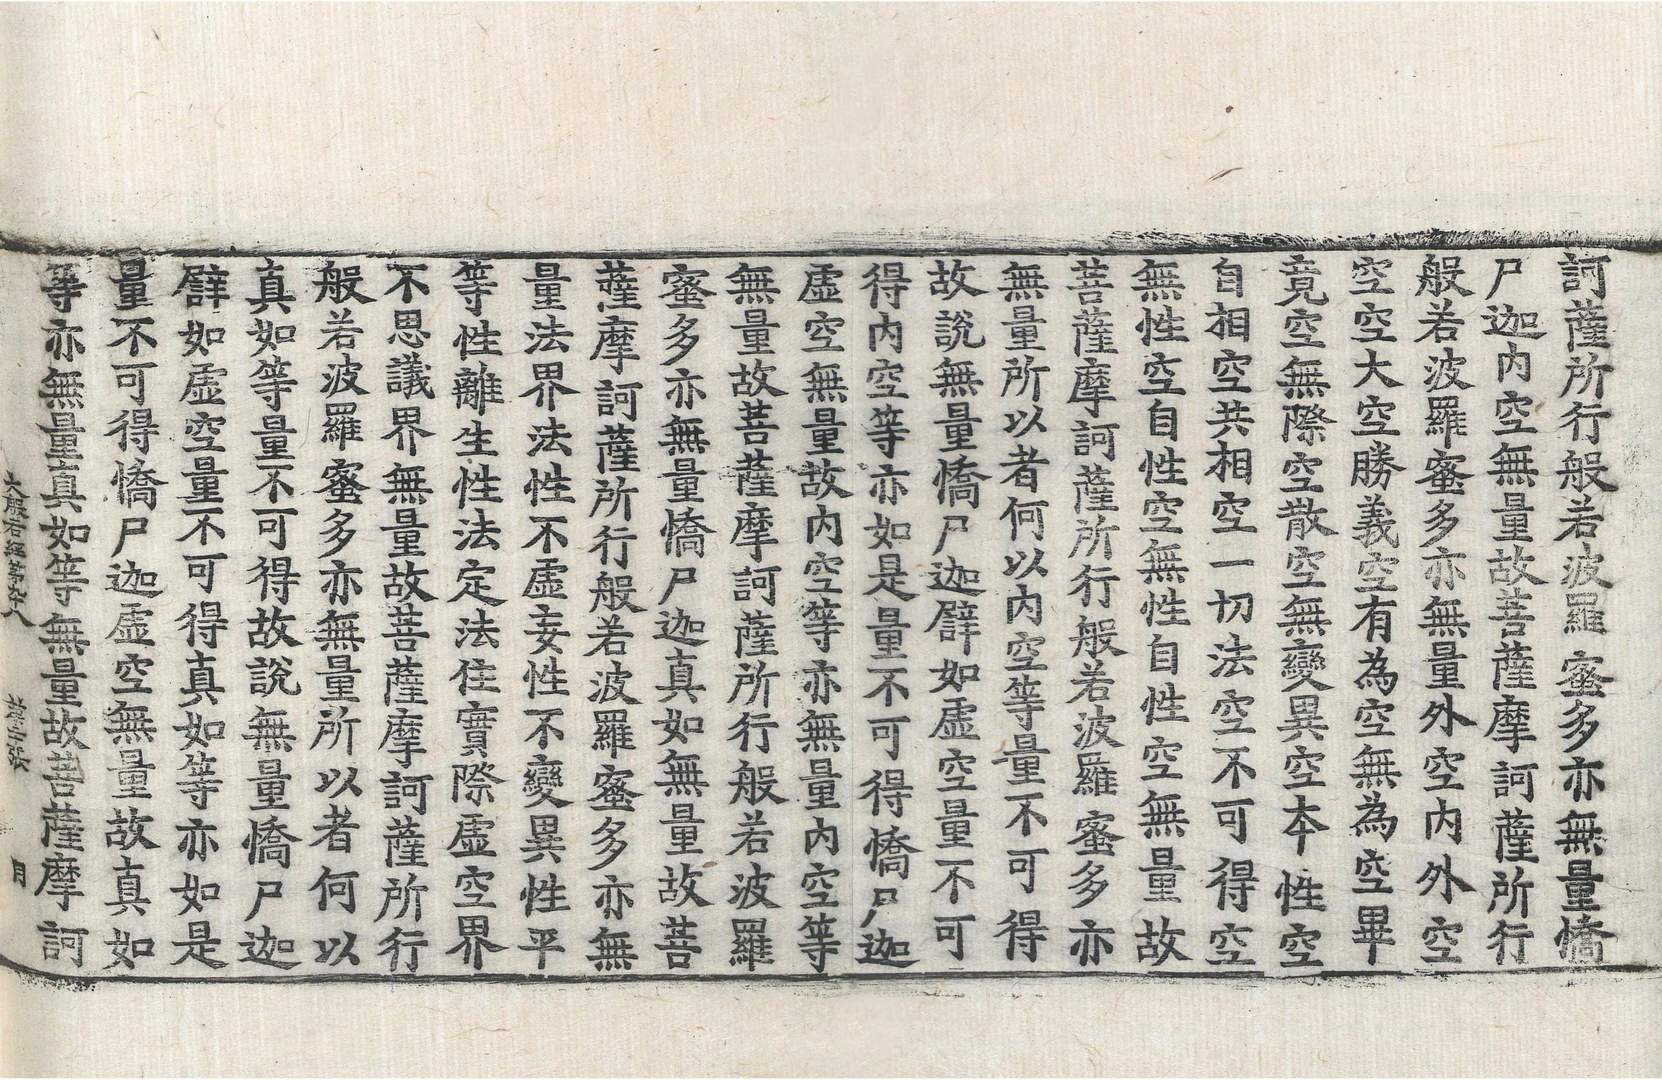 訶薩所行般若波羅蜜多亦無量憍
尸迦內空無量故菩薩摩訶薩所行
般若波羅蜜多亦無量外空內外空
空空大空勝義空有為空無為空畢
竟空無際空散空無變異空本性空
自相空共相空一切法空不可得空
無性空自性空無性自性空無量故
菩薩摩訶薩所行般若波羅蜜多亦
無量所以者何以內空等量不可得
故說無量憍尸迦譬如虛空量不可
得內空等亦如是量不可得憍尸迦
虛空無量故內空等亦無量內空等
無量故菩薩摩訶薩所行般若波羅
蜜多亦無量憍尸迦真如無量故菩
薩摩訶薩所行般若波羅蜜多亦無
量法界法性不虛妄性不變異性平
等性離生性法定法住實際虛空界
不思議界無量故菩薩摩訶薩所行
般若波羅蜜多亦無量所以者何以
真如等量不可得故說無量憍尸迦
譬如虛空量不可得真如等亦如是
量不可得憍尸迦虛空無量故真如
等亦無量真如等無量故菩薩摩訶
大般若經第卆八 第三張 月